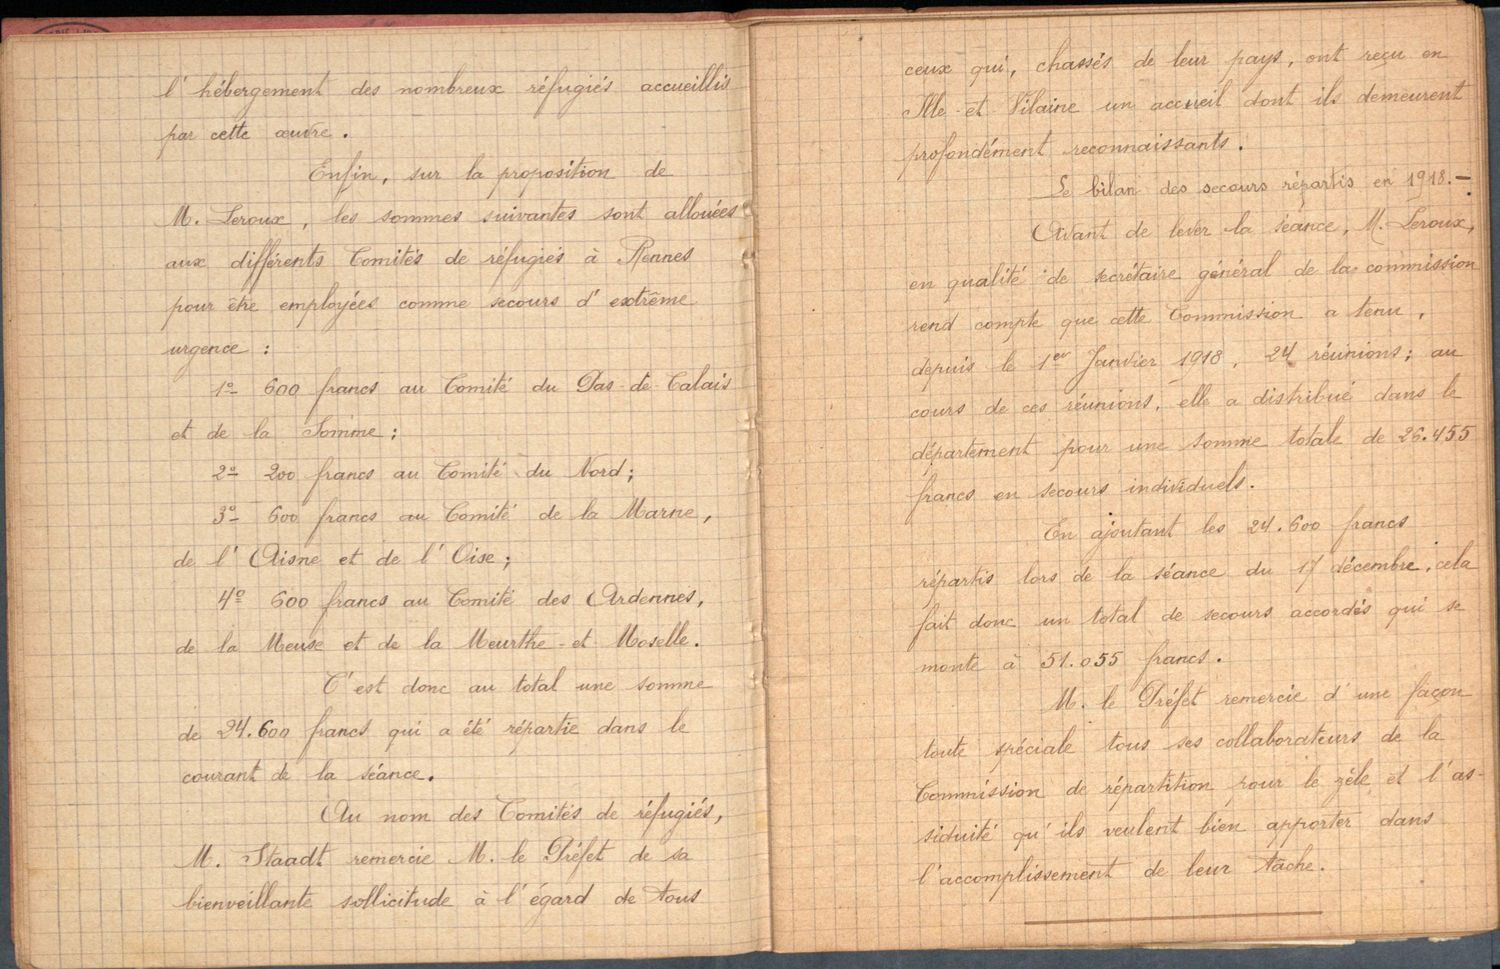 l'hébergement des nombreux réfugiés accueillis
par cette œuvre.
Enfin, sur la proposition de
M. Leroux, les sommes suivantes sont allouées
aux différents Comités de réfugiés à Rennes
pour être employées comme secours d'extrême
urgence :
1o- 600 francs au Comité du Pas-de-Calais
et de la Somme ;
2o- 200 francs au Comité du Nord ;
3o- 600 francs au Comité de la Marne,
de l'Aisne et de l'Oise ;
4o 600 francs au Comité des Ardennes,
de la Meuse et de la Meurthe-et-Moselle.
C'est donc au total une somme
de 24.600 francs qui a été répartie dans le
courant de la séance.
Au nom des Comités de réfugiés,
M. Staadt remercie M. le Préfet de sa
bienveillante sollicitude à l'égard de tous
ceux qui, chassés de leur pays, ont reçu en
Ille-et-Vilaine un accueil dont ils demeurent
profondément reconnaissants.
Le bilan des secours répartis en 1918.-
Avant de lever la séance, M. Leroux,
en qualité de secrétaire général de la commission
rend compte que cette Commission a tenu,
depuis le 1er Janvier 1918, 24 réunions ; au
cours de ces réunions, elle a distribué dans le
département pour une somme totale de 26.455
francs en secours individuels.
En ajoutant les 24.600 francs
répartis lors de la séance du 17 décembre, cela
fait donc un total de secours accordés qui se
monte à 51.055 francs.
M. le Préfet remercie d'une façon
toute spéciale tous ses collaborateurs de la
Commission de répartition pour le zèle et l'as-
siduité qu'ils veulent bien apporter dans
l'accomplissement de leur tâche.